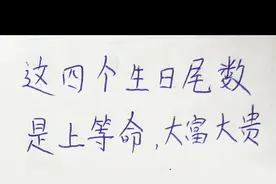 这四个生日尾数
是上等命,大富大贵